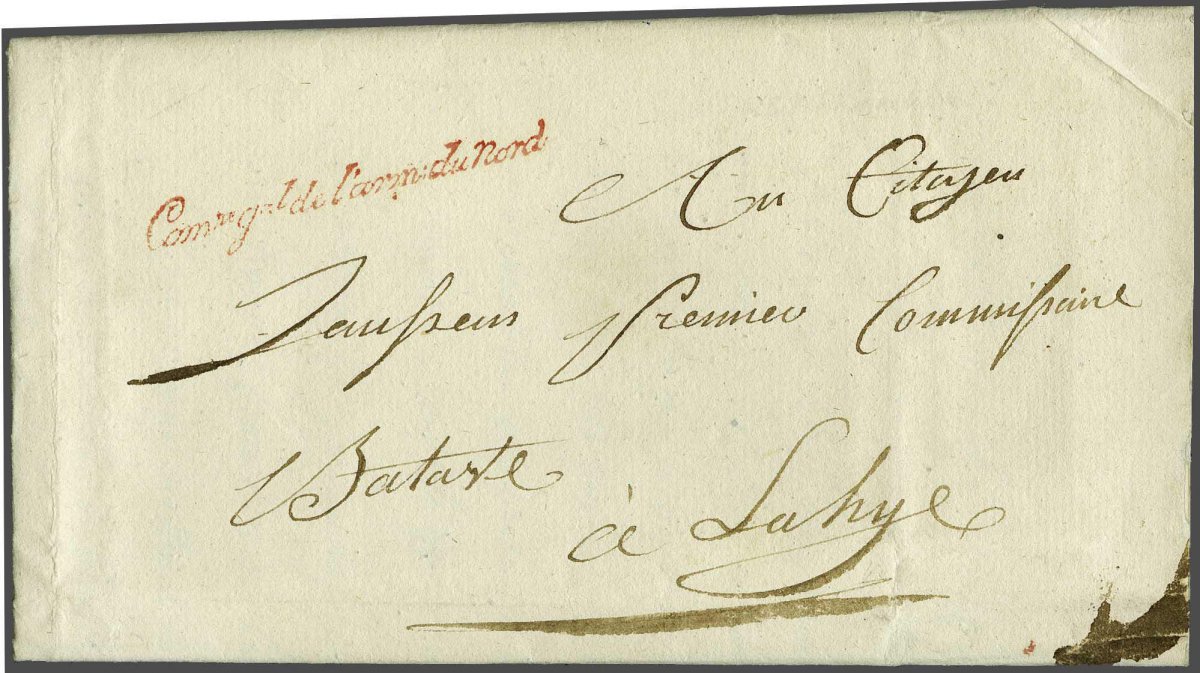 Com.re g.al de l'arm: du Nord.
Au Citoyen
Janssens Premier Commissaire
Batave
à Lahye